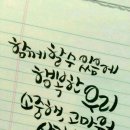 함께 할 수 있음에
행복한 우리
소중해, 고마워